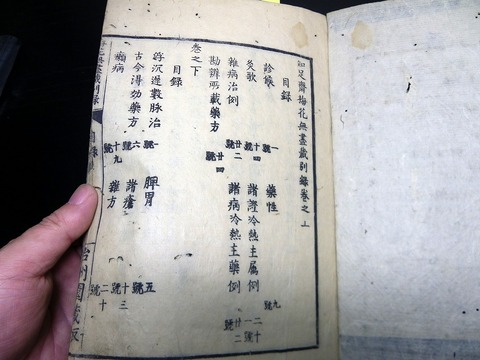 知足齋梅花無盡藏別錄卷之上
目録
診候 一號 藥性 九號
灸歌 十四號 諸證冷熱主屬例 二十一號
雜病治例 廿二號 諸病冷熱主藥例 廿二號
勘辨所載藥方 廿四號
卷之下
目録
浮沉遲數脉治 一號 脾胃 五號
古今得効藥方 六號 諸瘡 十三號
癩病 十九號 雜方 二十號
目錄